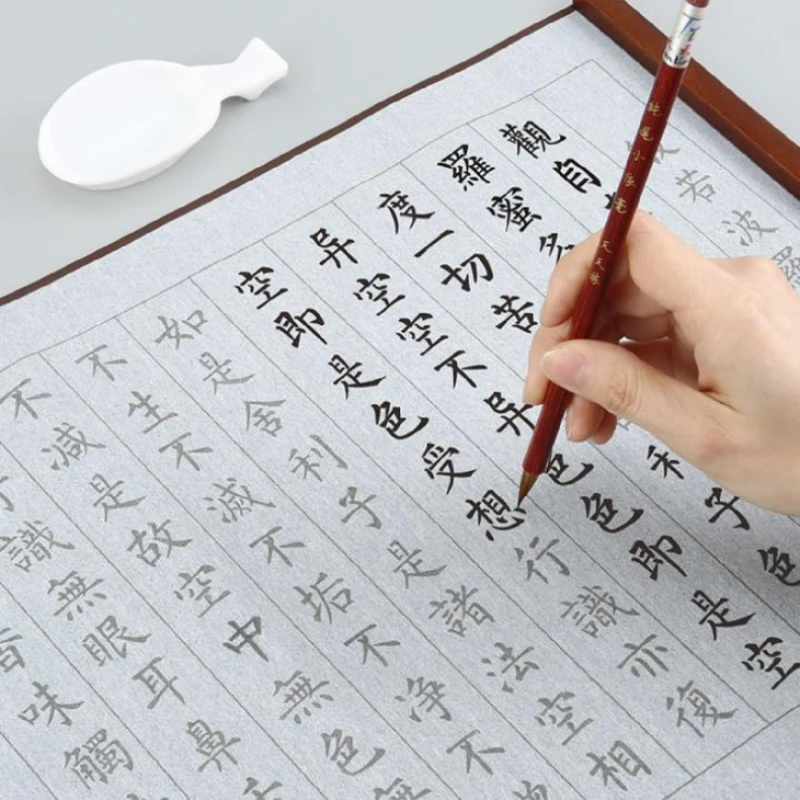 般若波羅
觀自
羅蜜多
度一切苦利子色
异空空不异色色即是空
空即是色受想行識亦復
如是舍利子是諸法空相
不生不滅不垢不淨不
不減是故空中無色無
識無眼耳鼻
香味觸